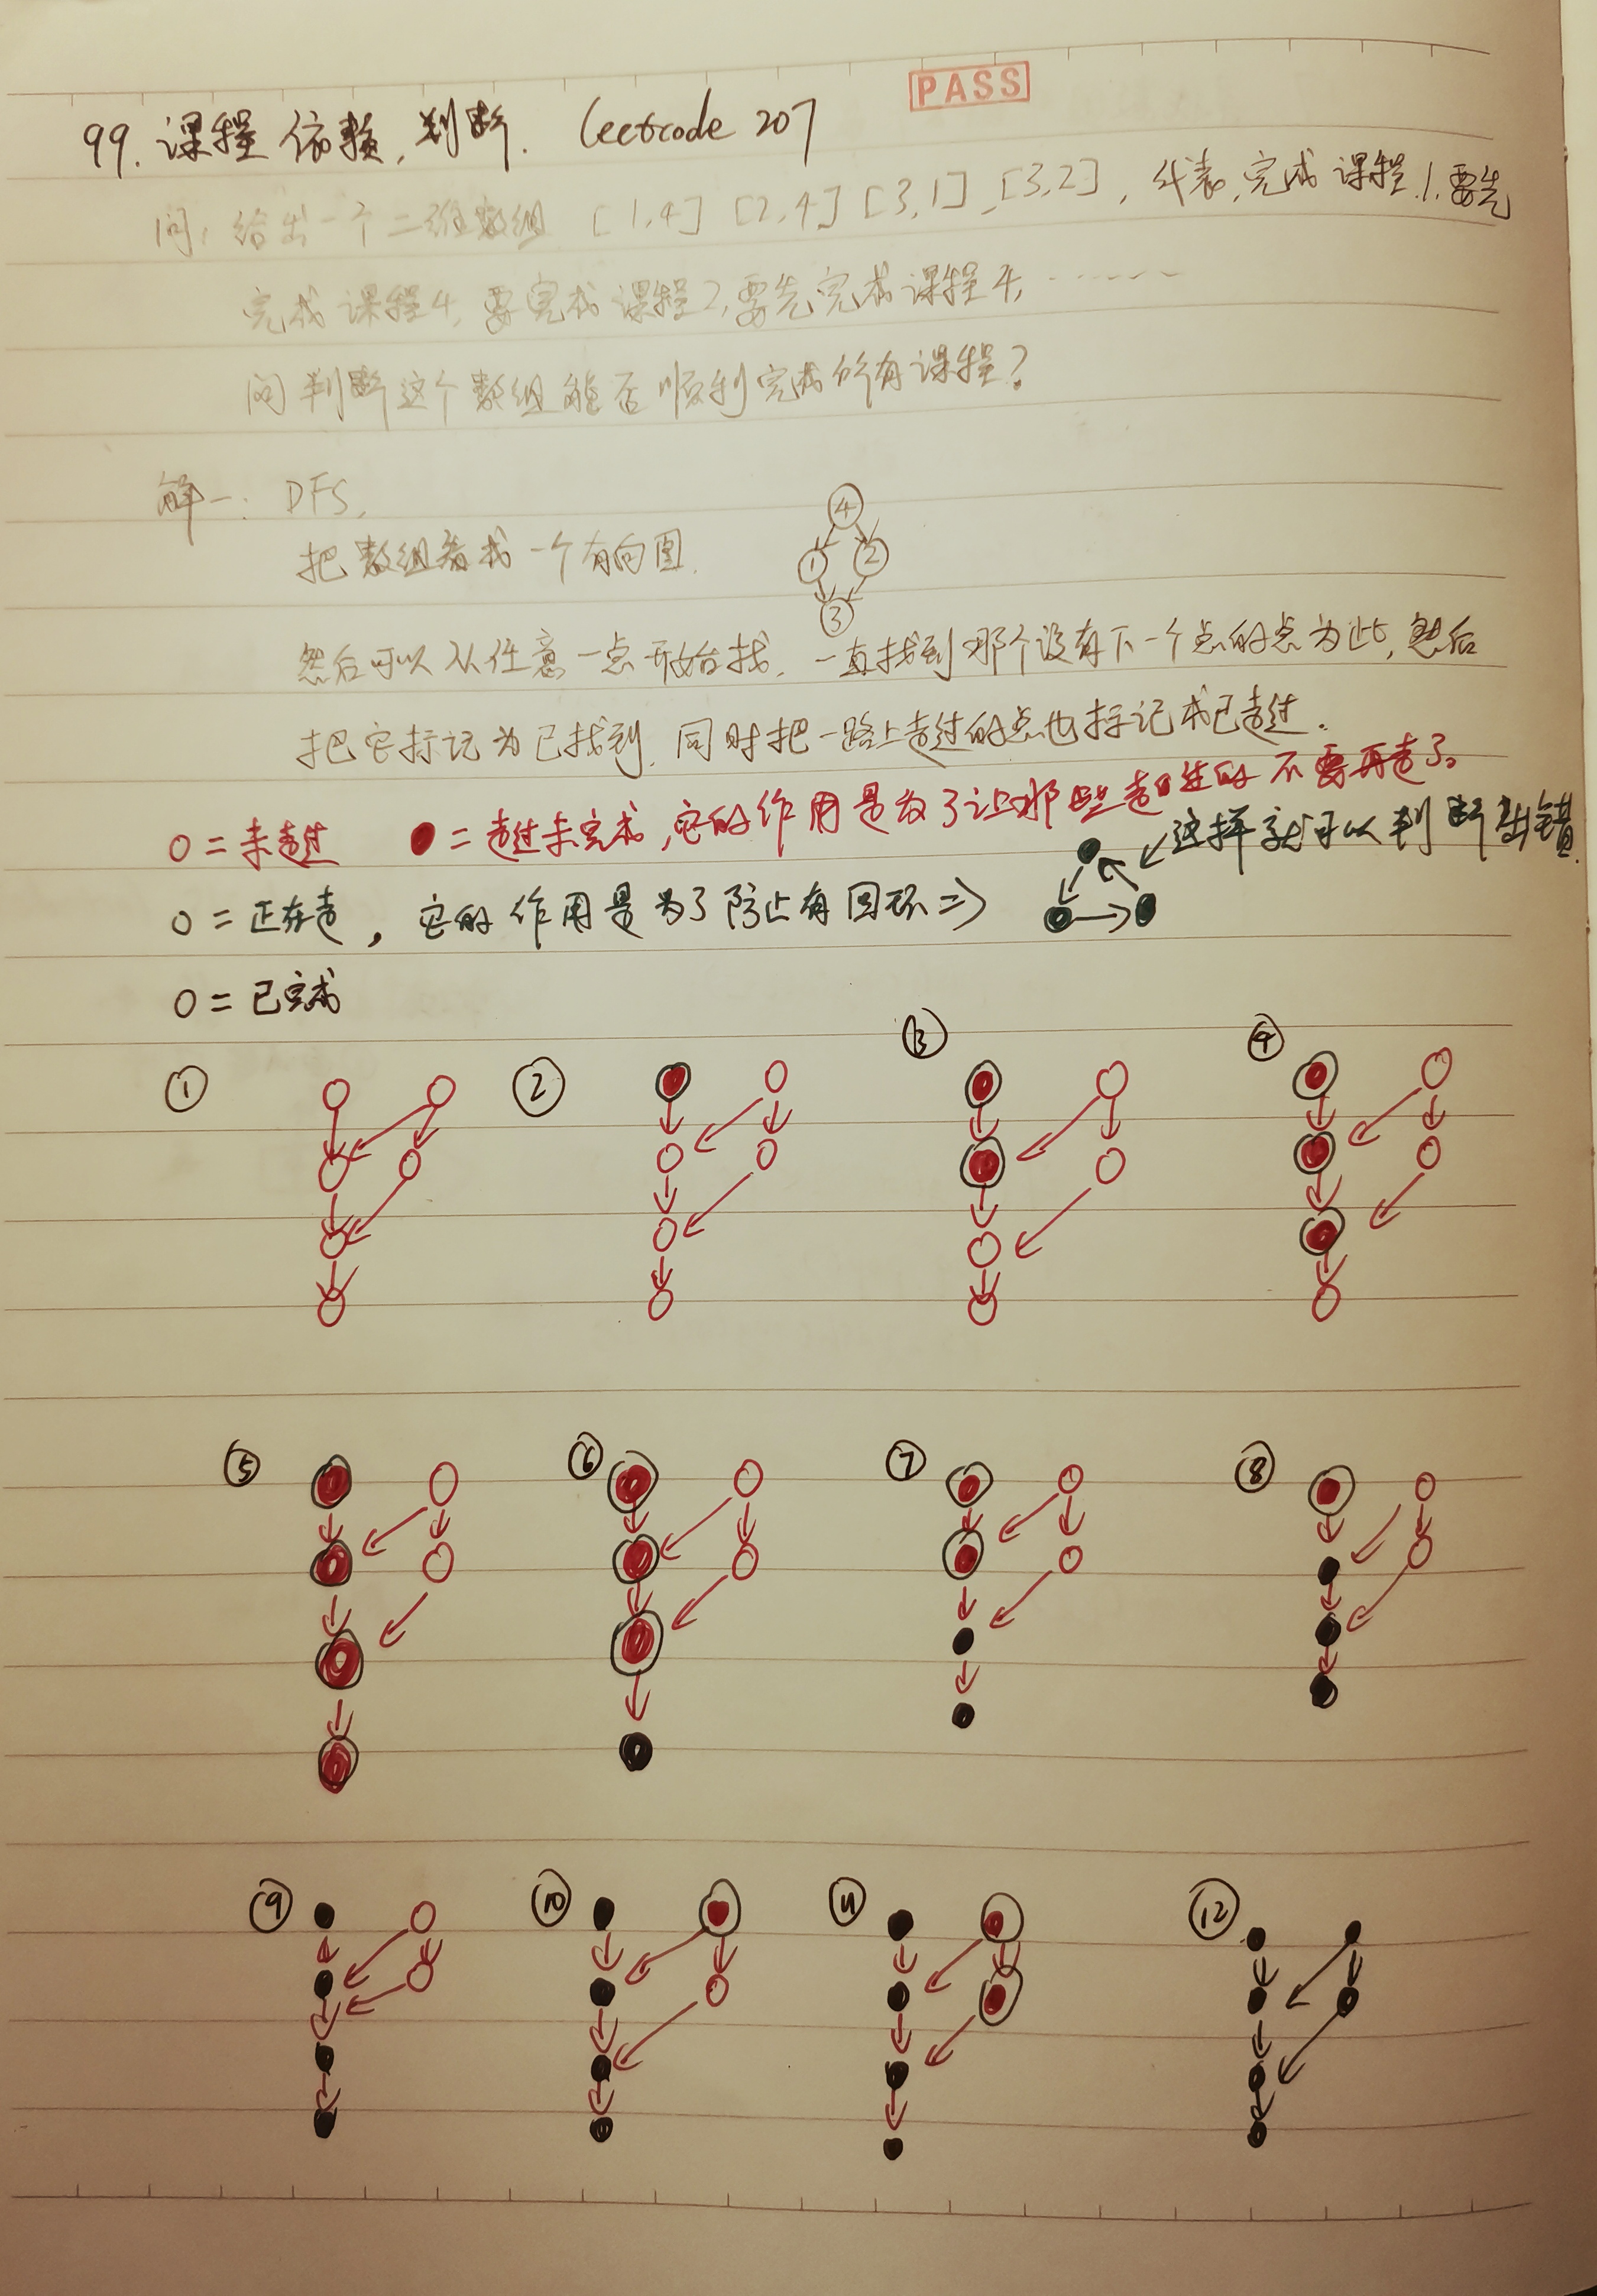 PASS
99. 课程依赖,判断. Leetcode 207
问: 给出一个二维数组 [1,4] [2,4] [3,1], [3,2], 代表,完成课程1,要先
完成课程4, 要完成课程2,要先完成课程4, ······
问判断这个数组能否顺利完成所有课程?
解一: DFS,
把数组看成一个有向图.
4
1 2
3
然后可以从任意一点开始找, 一直找到那个没有下一个点的点为止, 然后
把它标记为已找到, 同时把一路上走过的点也标记成已走过.
O = 未走过 ● = 走过未完成,它的作用是为了让那些走过的不要再走了。
这样就可以判断出错.
O = 正在走, 它的作用是为了防止有回环 =>
O = 已完成
① ② ③ ④
⑤ ⑥ ⑦ ⑧
⑨ ⑩ ⑪ ⑫